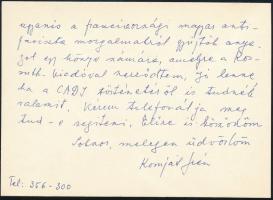 ugyanis a franciaországi magyar anti-
fasiszta mozgalmakról gyűjtök anya-
got egy könyv számára, amelyre a Kos-
suth kiadóval szerződtem. Jó lenne
ha a CADI történetéről is tudnék
valamit. Kérem telefonálja meg
tud-e segíteni. Előre is köszönöm
Sokszor, melegen üdvözlöm
Komját Irén
Tel: 356-300